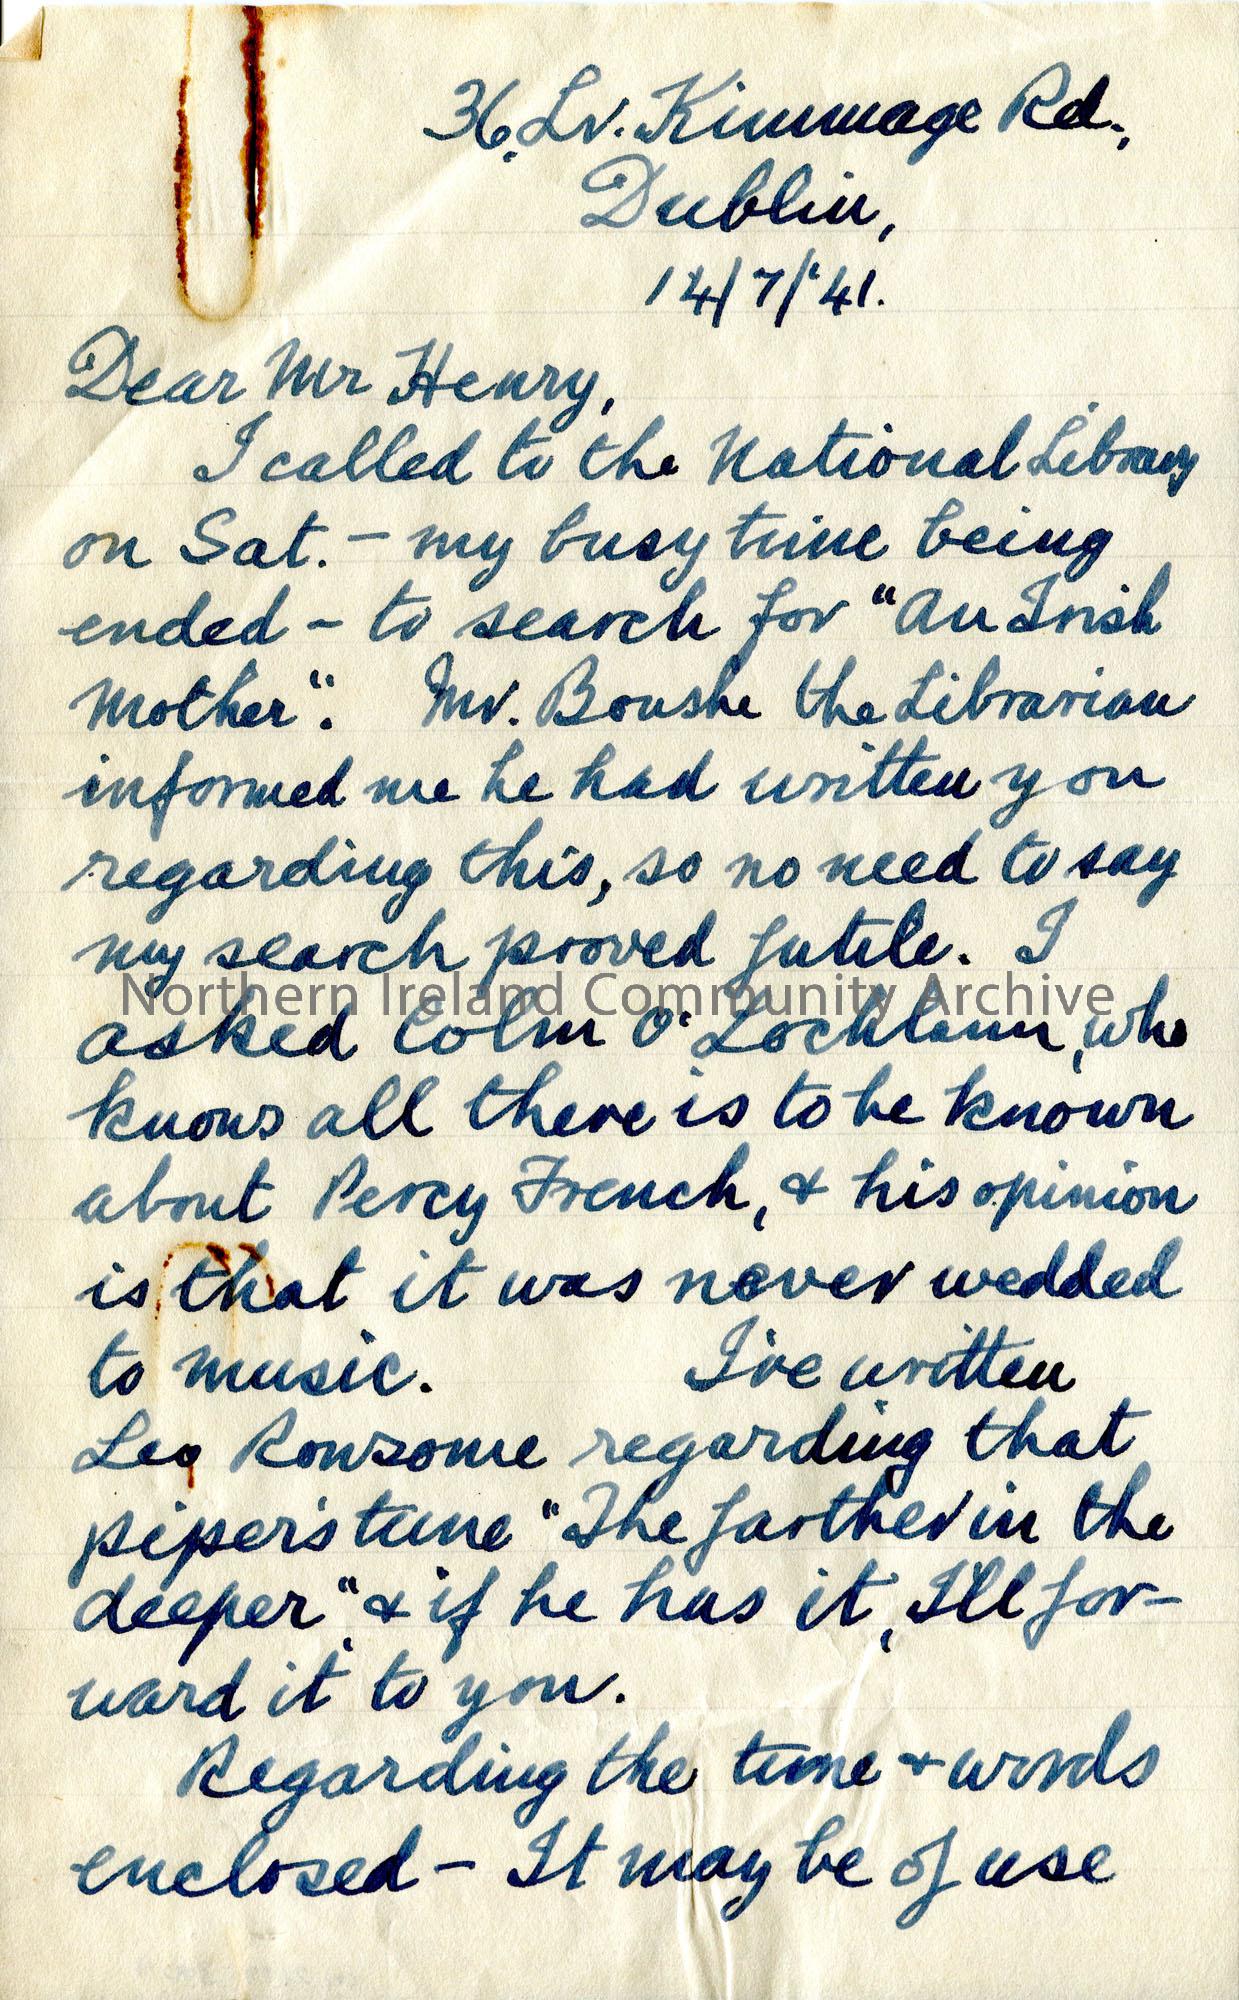 36, Lr. Kimmage Rd.,
Dublin,
14/7/'41.
Dear Mr Henry,
I called to the National Library
on Sat. – my busy time being
ended – to search for "An Irish
Mother". Mr. Boushe the Librarian
informed me he had written you
regarding this, so no need to say
my search proved futile. I
Northern Ireland Community Archive
asked Colm O'Lochlann, who
knows all there is to be known
about Percy French, & his opinion
is that it was never wedded
to music. I've written
Leo Rowsome regarding that
piper's tune "The farther in the
deeper" & if he has it, I'll for-
ward it to you.
Regarding the tune & words
enclosed – It may be of use